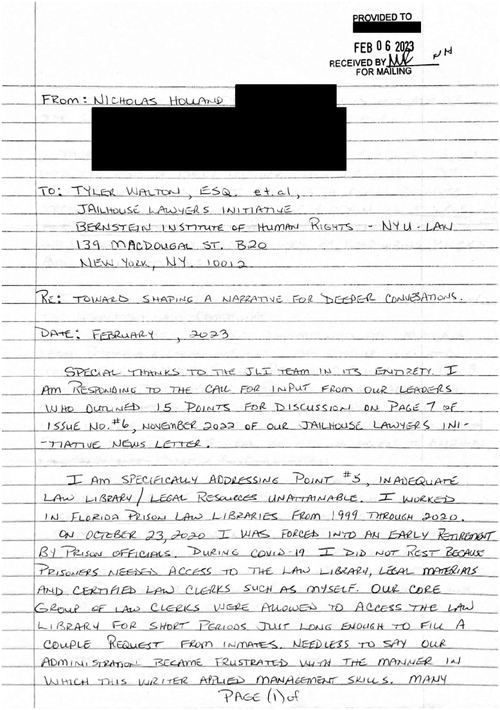 PROVIDED TO
FEB 06 2023
RECEIVED BY
FOR MAILING
FROM: NICHOLAS HOLLAND
TO: TYLER WALTON, ESQ. et.al,
JAILHOUSE LAWYERS INITIATIVE
BERNSTEIN INSTITUTE OF HUMAN RIGHTS - NYU - LAW
139 MACDOUGAL ST. B20
NEW YORK, NY. 10012
RE: TOWARD SHAPING A NARRATIVE FOR DEEPER CONVERSATIONS.
DATE: FEBRUARY , 2023
SPECIAL THANKS TO THE JLI TEAM IN ITS ENTIRETY. I
AM RESPONDING TO THE CALL FOR INPUT FROM OUR LEADERS
WHO OUTLINED 15 POINTS FOR DISCUSSION ON PAGE 7 OF
ISSUE NO. #6, NOVEMBER 2022 OF OUR JAILHOUSE LAWYERS INI-
-TIATIVE NEWS LETTER.
I AM SPECIFICALLY ADDRESSING POINT #5, INADEQUATE
LAW LIBRARY/LEGAL RESOURCES UNATTAINABLE. I WORKED
IN FLORIDA PRISON LAW LIBRARIES FROM 1999 THROUGH 2020.
ON OCTOBER 23, 2020 I WAS FORCED INTO AN EARLY RETIREMENT
BY PRISON OFFICIALS. DURING COVID-19 I DID NOT REST BECAUSE
PRISONERS NEEDED ACCESS TO THE LAW LIBRARY, LEGAL MATERIALS
AND CERTIFIED LAW CLERKS SUCH AS MYSELF. OUR CORE
GROUP OF LAW CLERKS WERE ALLOWED TO ACCESS THE LAW
LIBRARY FOR SHORT PERIODS JUST LONG ENOUGH TO FILL A
COUPLE REQUEST FROM INMATES. NEEDLESS TO SAY OUR
ADMINISTRATION BECAME FRUSTRATED WITH THE MANNER IN
WHICH THIS WRITER APPLIED MANAGEMENT SKILLS. MANY
PAGE (1) of